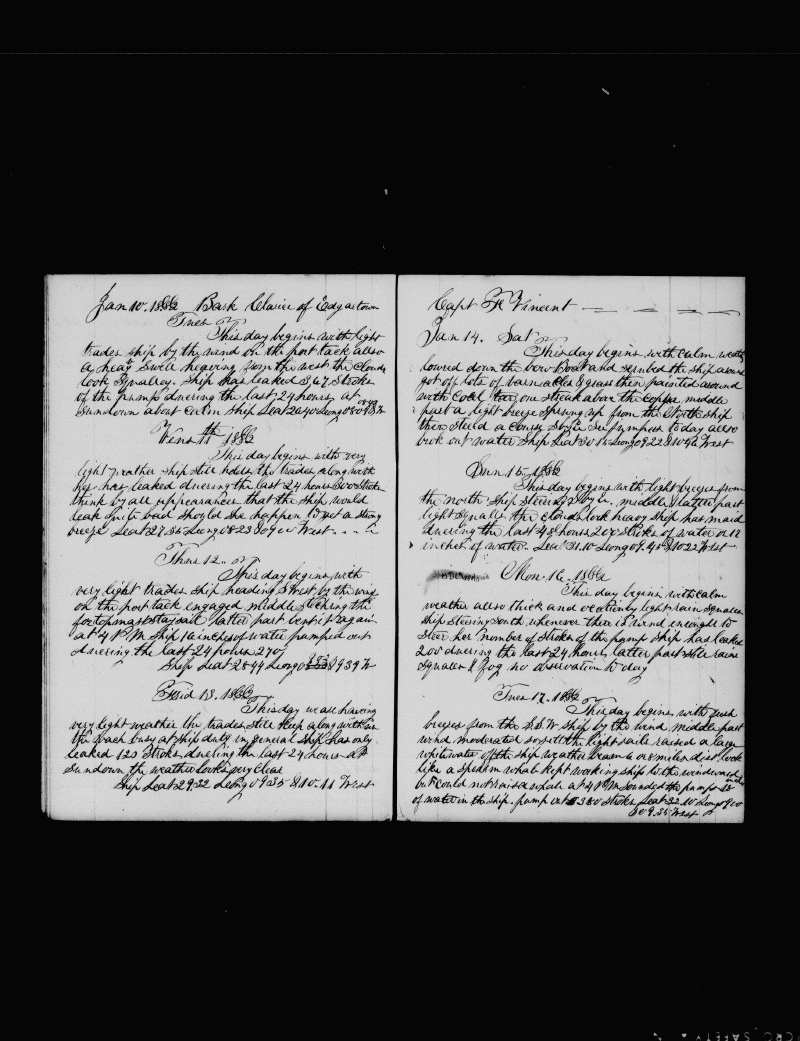 Jan 10. 1882 Bark Clarice of Edgartown
Tues
This day begins with light
trades ship by the wind on the port tack allso
a heay swell heaving from the west the clouds
look squalley. Ship has leaked 367 stroks
of the pump duering the last 24 hours at
sundown about calm ship Leat 26 40 Long
Wens 11th 1882
This day begins with very
light weather ship still holds the trades along with
her has leaked duering the last 24 hours 300 stroks
think by all appearances that the ship would
leak quite bad should she happen to get a strong
breeze Leat 27.35 Long 08 23 809 West
Thurs 12.
This day begins with
very light trades ship heading S West by the wind
on the port tack engaged middle stiching the
foretopmast staysail latter part bent it again
at 4 P M ship 16 inches of water pumped out
duering the last 24 hours 270
Ship Leat 28 44 Long 8 9 39 W
Frid 13. 1882
This day we are having
very light weather the trades still keep along with us
the coach busy at ship duty in general ship has only
leaked 120 stroks duering the last 24 hours at
sundown the weather looks very clear
Ship Leat 29 22 Long 09.35 & 10. 11 West
Capt H Vincent
Jan 14. Sat
This day begins with calm weath
loured down the bow Boat and scrubed the ship around
got off lots of barnacles & grass then painted around
with Coal tar one streak above the copper middle
part a light breeze sprung up from the North ship
then steerd a course S by E no pumpous today allso
brok out water Ship Leat 30 15 Long 09 22 & 10 42 West
Sun 15. 1882
This day begins with light breezes from
the north ship steering S by E. middle & latter part
light squalls the clouds look heavy ship has maid
duering the last 48 hours 200 stroks of water or 12
inches of water. Leat 31.10 Long 09.45 & 10 22 West
Mon 16. 1882
This day begins with calm
weather allso thick and occationly light rain squalls
ship steering South whenever there is wind enought to
steer her number of stroks of the pump ship has leaked
200 duering the last 24 hours latter part still raine
squalls & fog no observation to day
Tues 17. 1882
This day begins with fresh
breezes from the S.S.W ship by the wind middle part
wind moderated so sett the light sails raised a large
white water off the ship weather beam 6 or 8 miles dist look
like a spearm whale kept working ship to the windward
but could not raise a whale at 4 P M sounded the pumps 18 inches
of water in the ship. pump out 380 stroks Leat 32.10 Long 9 00
& 09.35 West